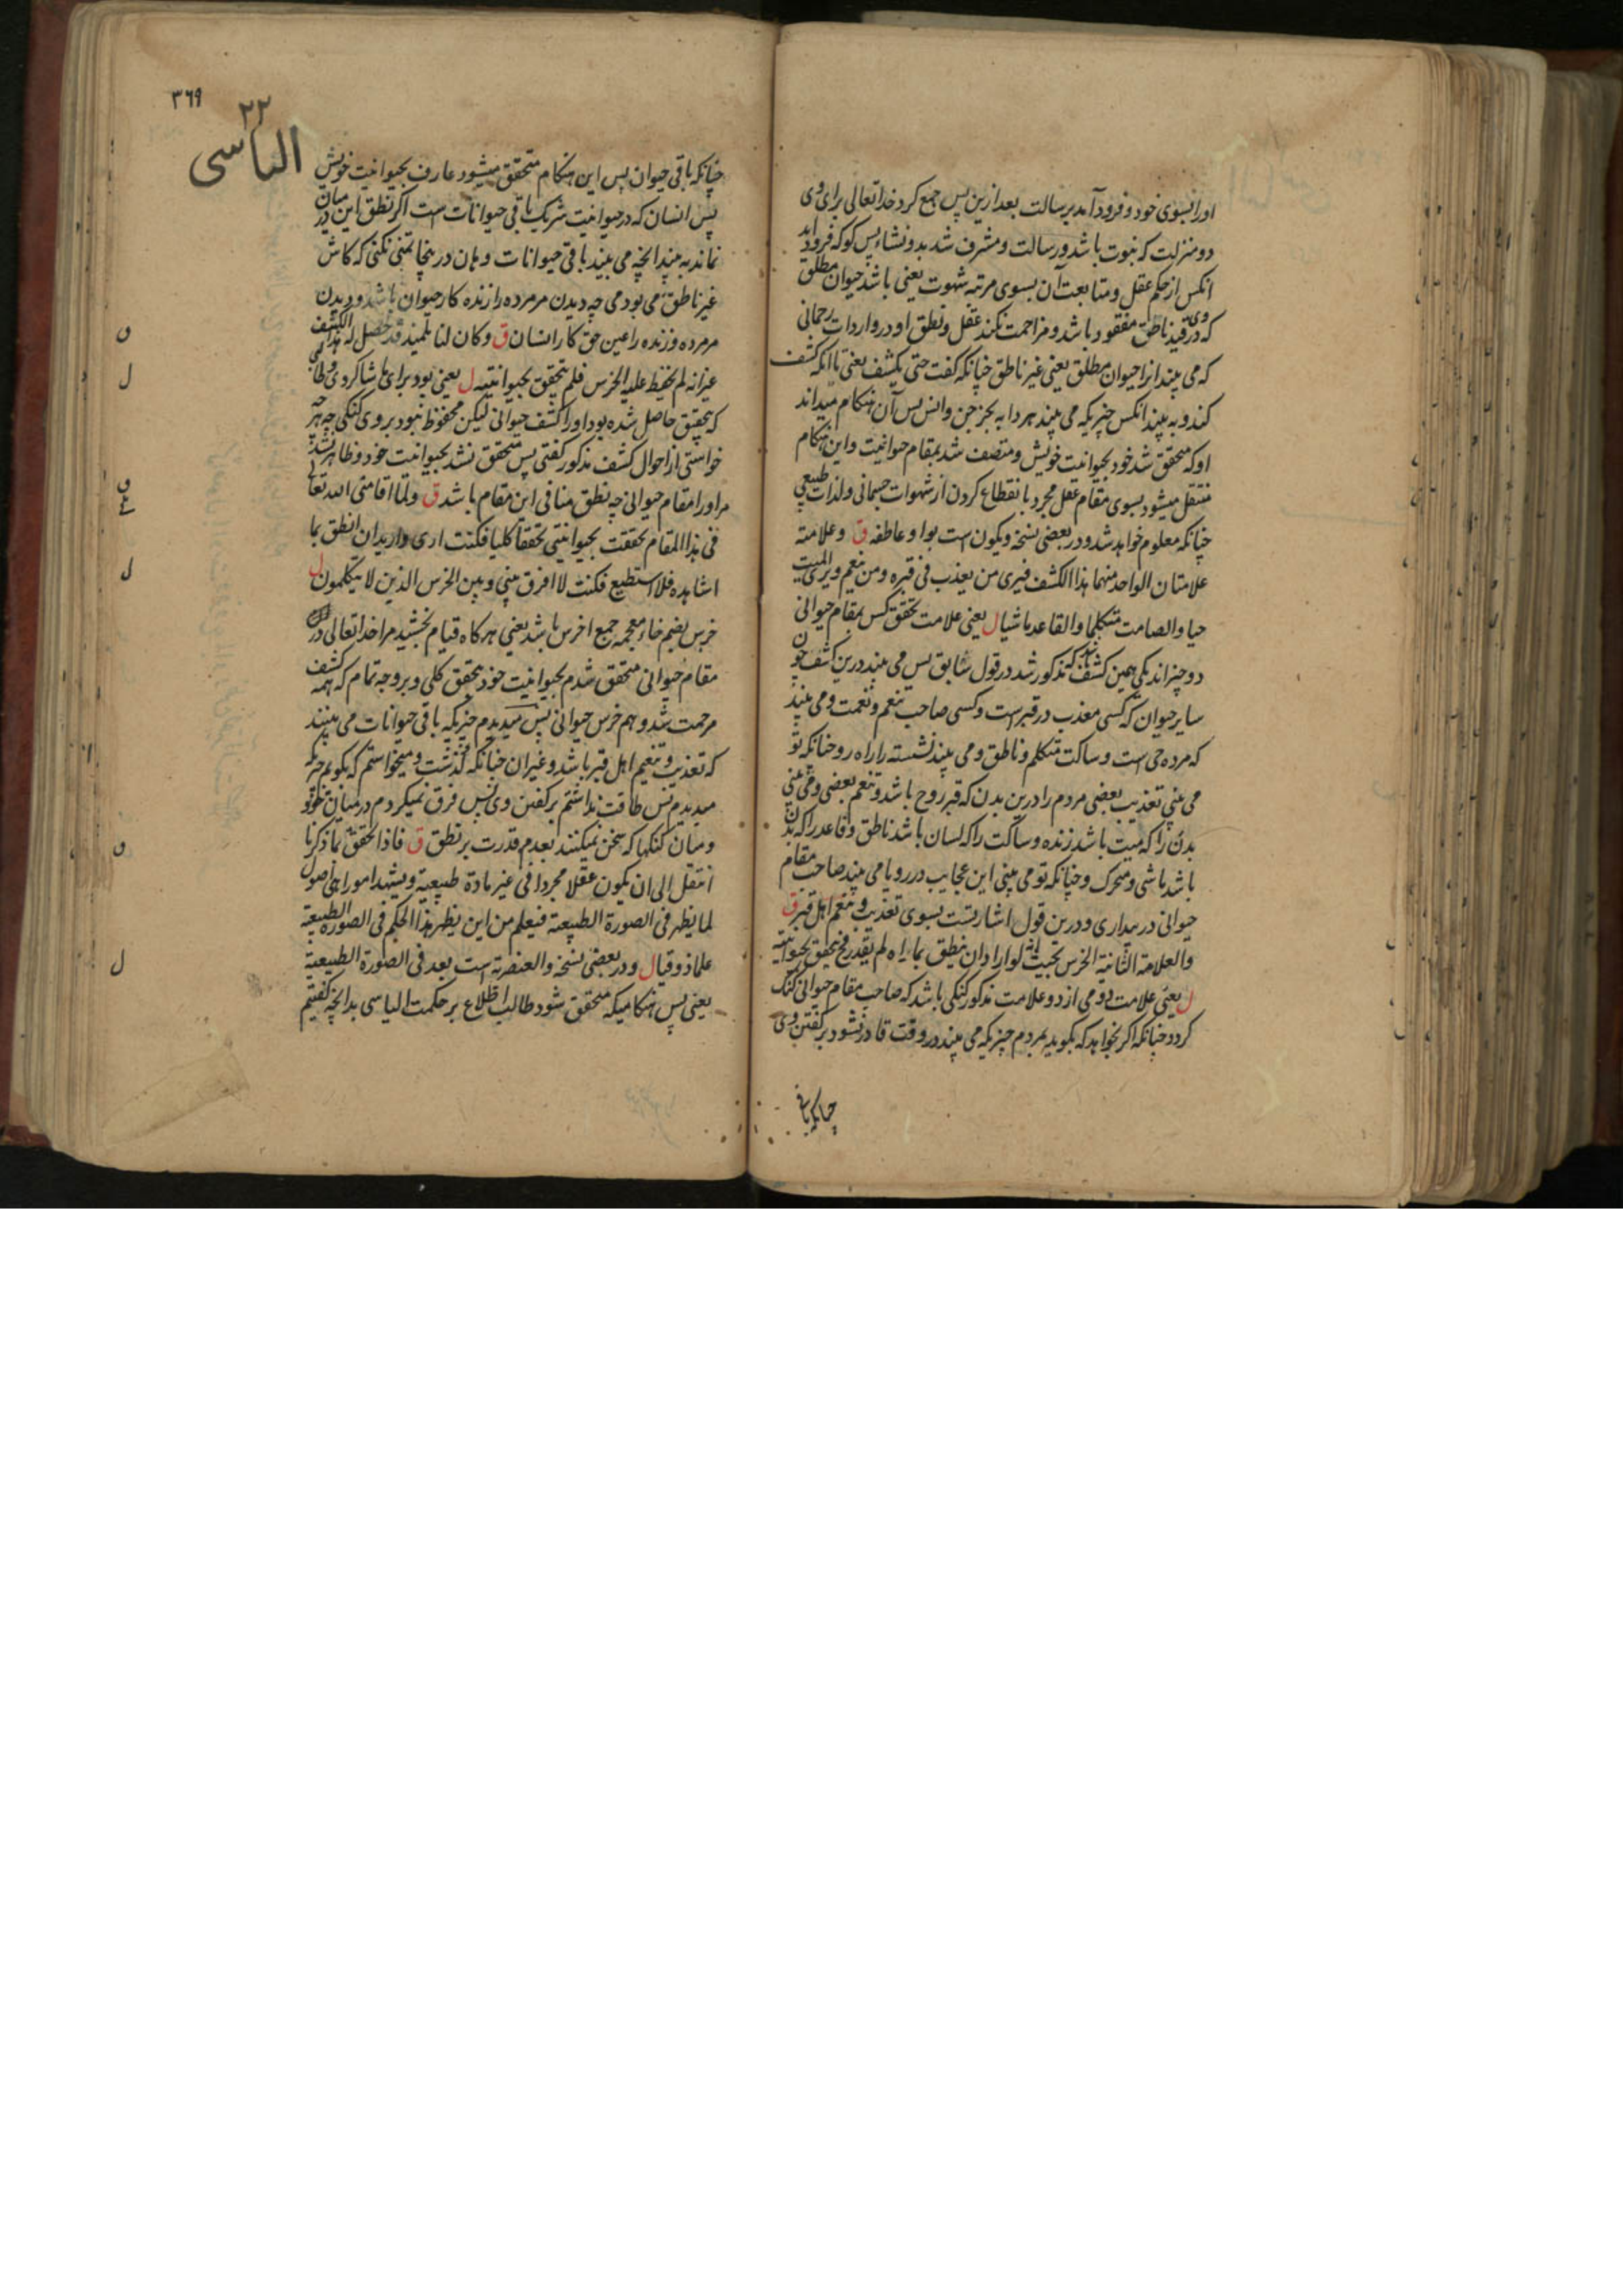 اورا بسوی خود و فرود آمد برسالت بعد ازین پس جمع کرد خدا تعالی برای وی
دو منزلت که نبوت باشد و رسالت و مشرف شد بدو نشاء پس کو که فرود اید
انکس از حکم عقل و متابعت آن بسوی مرتبه شهوت یعنی باشد حیوان مطلق
که در وی قید ناطق مفقود باشد و مزاحمت نکند عقل و نطق او در واردات رحمانی
که می بیند انرا حیوان مطلق یعنی غیر ناطق چنانکه کفت حتی یکشف یعنی تا انکه کشف
کند و به بیند انکس چیزیکه می بیند هر دابه بجز جن و انس پس آن هنکام میداند
او که متحقق شد خود بحیوانیت خویش و متصف شد بمقام حیوانیت و این هنکام
منتقل میشود بسوی مقام عقل مجرد با نقطاع کردن از شهوات جسمانی و لذات طبیعی
چنانکه معلوم خواهد شد و در بعضی نسخه و یکون است بواو عاطفه ق و علامته
علامتان الواحد منهما هذا الکشف فیری من یعذب فی قبره و من ینعم و یری المیت
حیا و الصامت متکلما و القاعد ماشیا ل یعنی علامت تحقق کس بمقام حیوانی
دو چیز اند یکی همین کشف که مذکور شد در قول سابق پس می بیند درین کشف چون
سایر حیوان که کسی معذب در قبر است و کسی صاحب تنعم و نعمت و می بیند
که مرده حی است و ساکت متکلم و ناطق و می بیند نشسته را راه رو چنانکه تو
می بینی تعذیب بعضی مردم را درین بدن که قبر روح باشد و تنعم بعضی و می بینی
بدن را که میت باشد زنده و ساکت را که لسان باشد ناطق و قاعد را که بدن
باشد ماشی و متحرک و چنانکه تو می بینی این عجایب در رویا می بیند صاحب مقام
حیوانی در بیداری و درین قول اشارتست بسوی تعذیب و تنعم اهل قبر ق
و العلامة الثانیة الخرس بحیث انه لو اراد ان ینطق بما راه لم یقدر فح یتحقق بحیوانیته
ل یعنی علامت دومی از دو علامت مذکور کنکی باشد که صاحب مقام حیوانی کنک
کردد چنانکه اکر بخواهد که بکوید بمردم چیزیکه می بیند در وقت قادر نشود بر کفتن وی
چنانکه باقی
٣٦٩
٢٢
الیاسی
چنانکه باقی حیوان پس این هنکام متحقق میشود عارف بحیوانیت خویش
پس انسان که در حیوانیت شریک باقی حیوانات است اکر نطق این در میان
نماند به بیند انچه می بیند باقی حیوانات و هان در ینجا تمنی نکنی که کاش
غیر ناطق می بودمی چه دیدن مر مرده را زنده کار حیوان باشد و دیدن
مر مرده و زنده را عین حق کار انسان ق و کان لنا تلمیذ قد حصل له هذا الکشف
غیر انه لم یحفظ علیه الخرس فلم یتحقق بحیوانیته ل یعنی بود برای ما شاکردی و طالبی
که بتحقیق حاصل شده بود او را کشف حیوانی لیکن محفوظ نبود بر وی کنکی چه هرچه
خواستی از احوال کشف مذکور کفتی پس متحقق نشد بحیوانیت خود و ظاهر نشد
مر او را مقام حیوانی چه نطق منافی این مقام باشد ق و لما اقامنی الله تعالی
فی هذا المقام تحققت بحیوانیتی تحققا کلیا فکنت اری و ارید ان انطق بما
اشاهده فلا استطیع فکنت لا افرق بینی و بین الخرس الذین لا یتکلمون ل
خرس بضم خاء معجمه جمع اخرس باشد یعنی هرکاه قیام بخشید مرا خدا تعالی در
مقام حیوانی متحقق شدم بحیوانیت خود بتحقق کلی و بر وجه تمام که همه کشف
مرحمت شد و هم خرس حیوانی پس میدیدم چیزیکه باقی حیوانات می بینند
که تعذیب و تنعیم اهل قبر باشد و غیر ان چنانکه کذشت و میخواستم که بکویم چیزیکه
میدیدم پس طاقت نداشتم بر کفتن وی پس فرق نمیکردم در میان خود
و میان کنکها که سخن نمیکنند بعدم قدرت بر نطق ق فاذا تحقق بما ذکرنا
انتقل الی ان یکون عقلا مجردا فی غیر مادة طبیعیة و یشهد امورا هی اصول
لما یظهر فی الصورة الطبیعیة فیعلم من این یظهر هذا الحکم فی الصورة الطبیعیة
علما ذوقیا ل و در بعضی نسخه و العنصریة است بعد فی الصورة الطبیعیة
یعنی پس هنکامیکه متحقق شود طالب اطلاع بر حکمت الیاسی بدانچه کفتیم
ق
ل
ق
ل
ق
ل